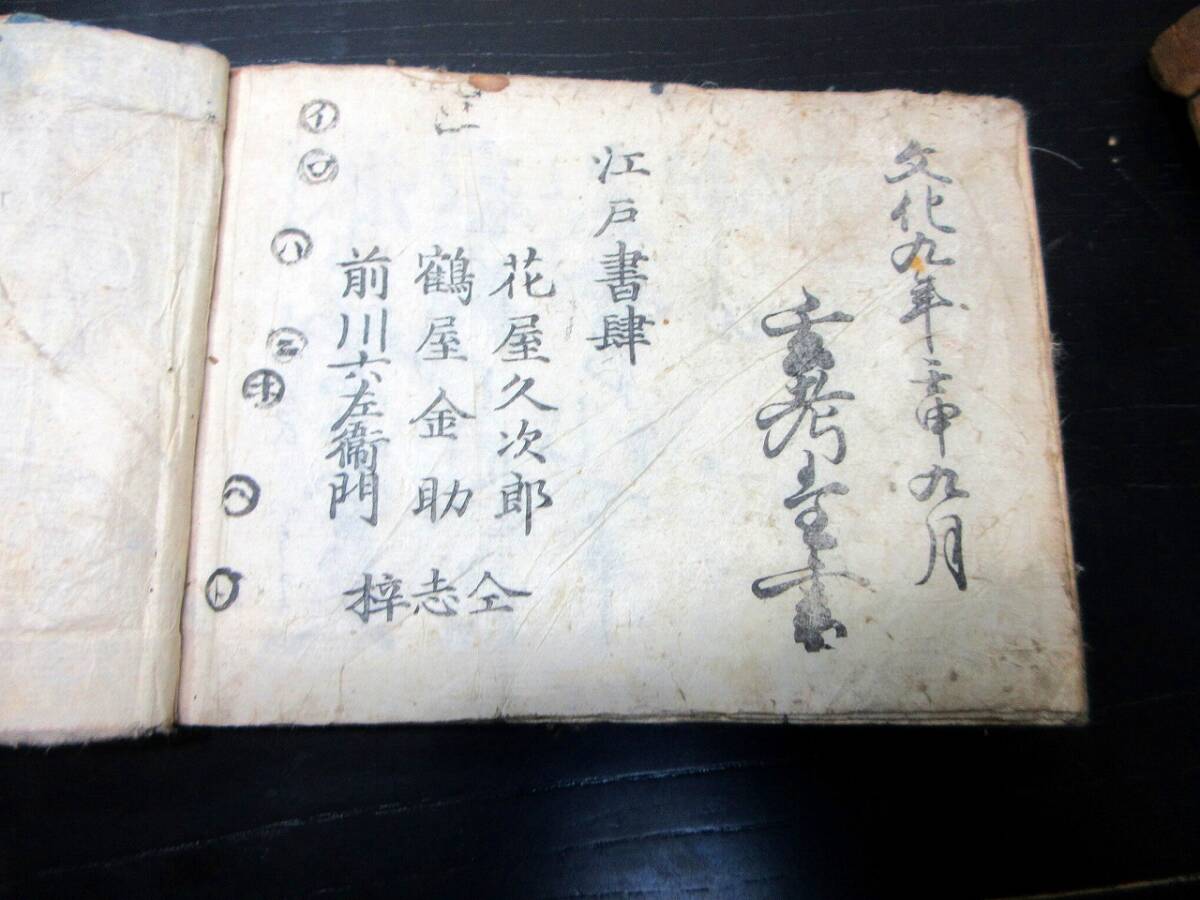 文化九年壬申九月
堂書
江戸書肆
花屋久次郎
鶴屋金助
前川六左衛門
仝志梓
イ
ロ
ハ
ニ
ホ
ヘ
ト